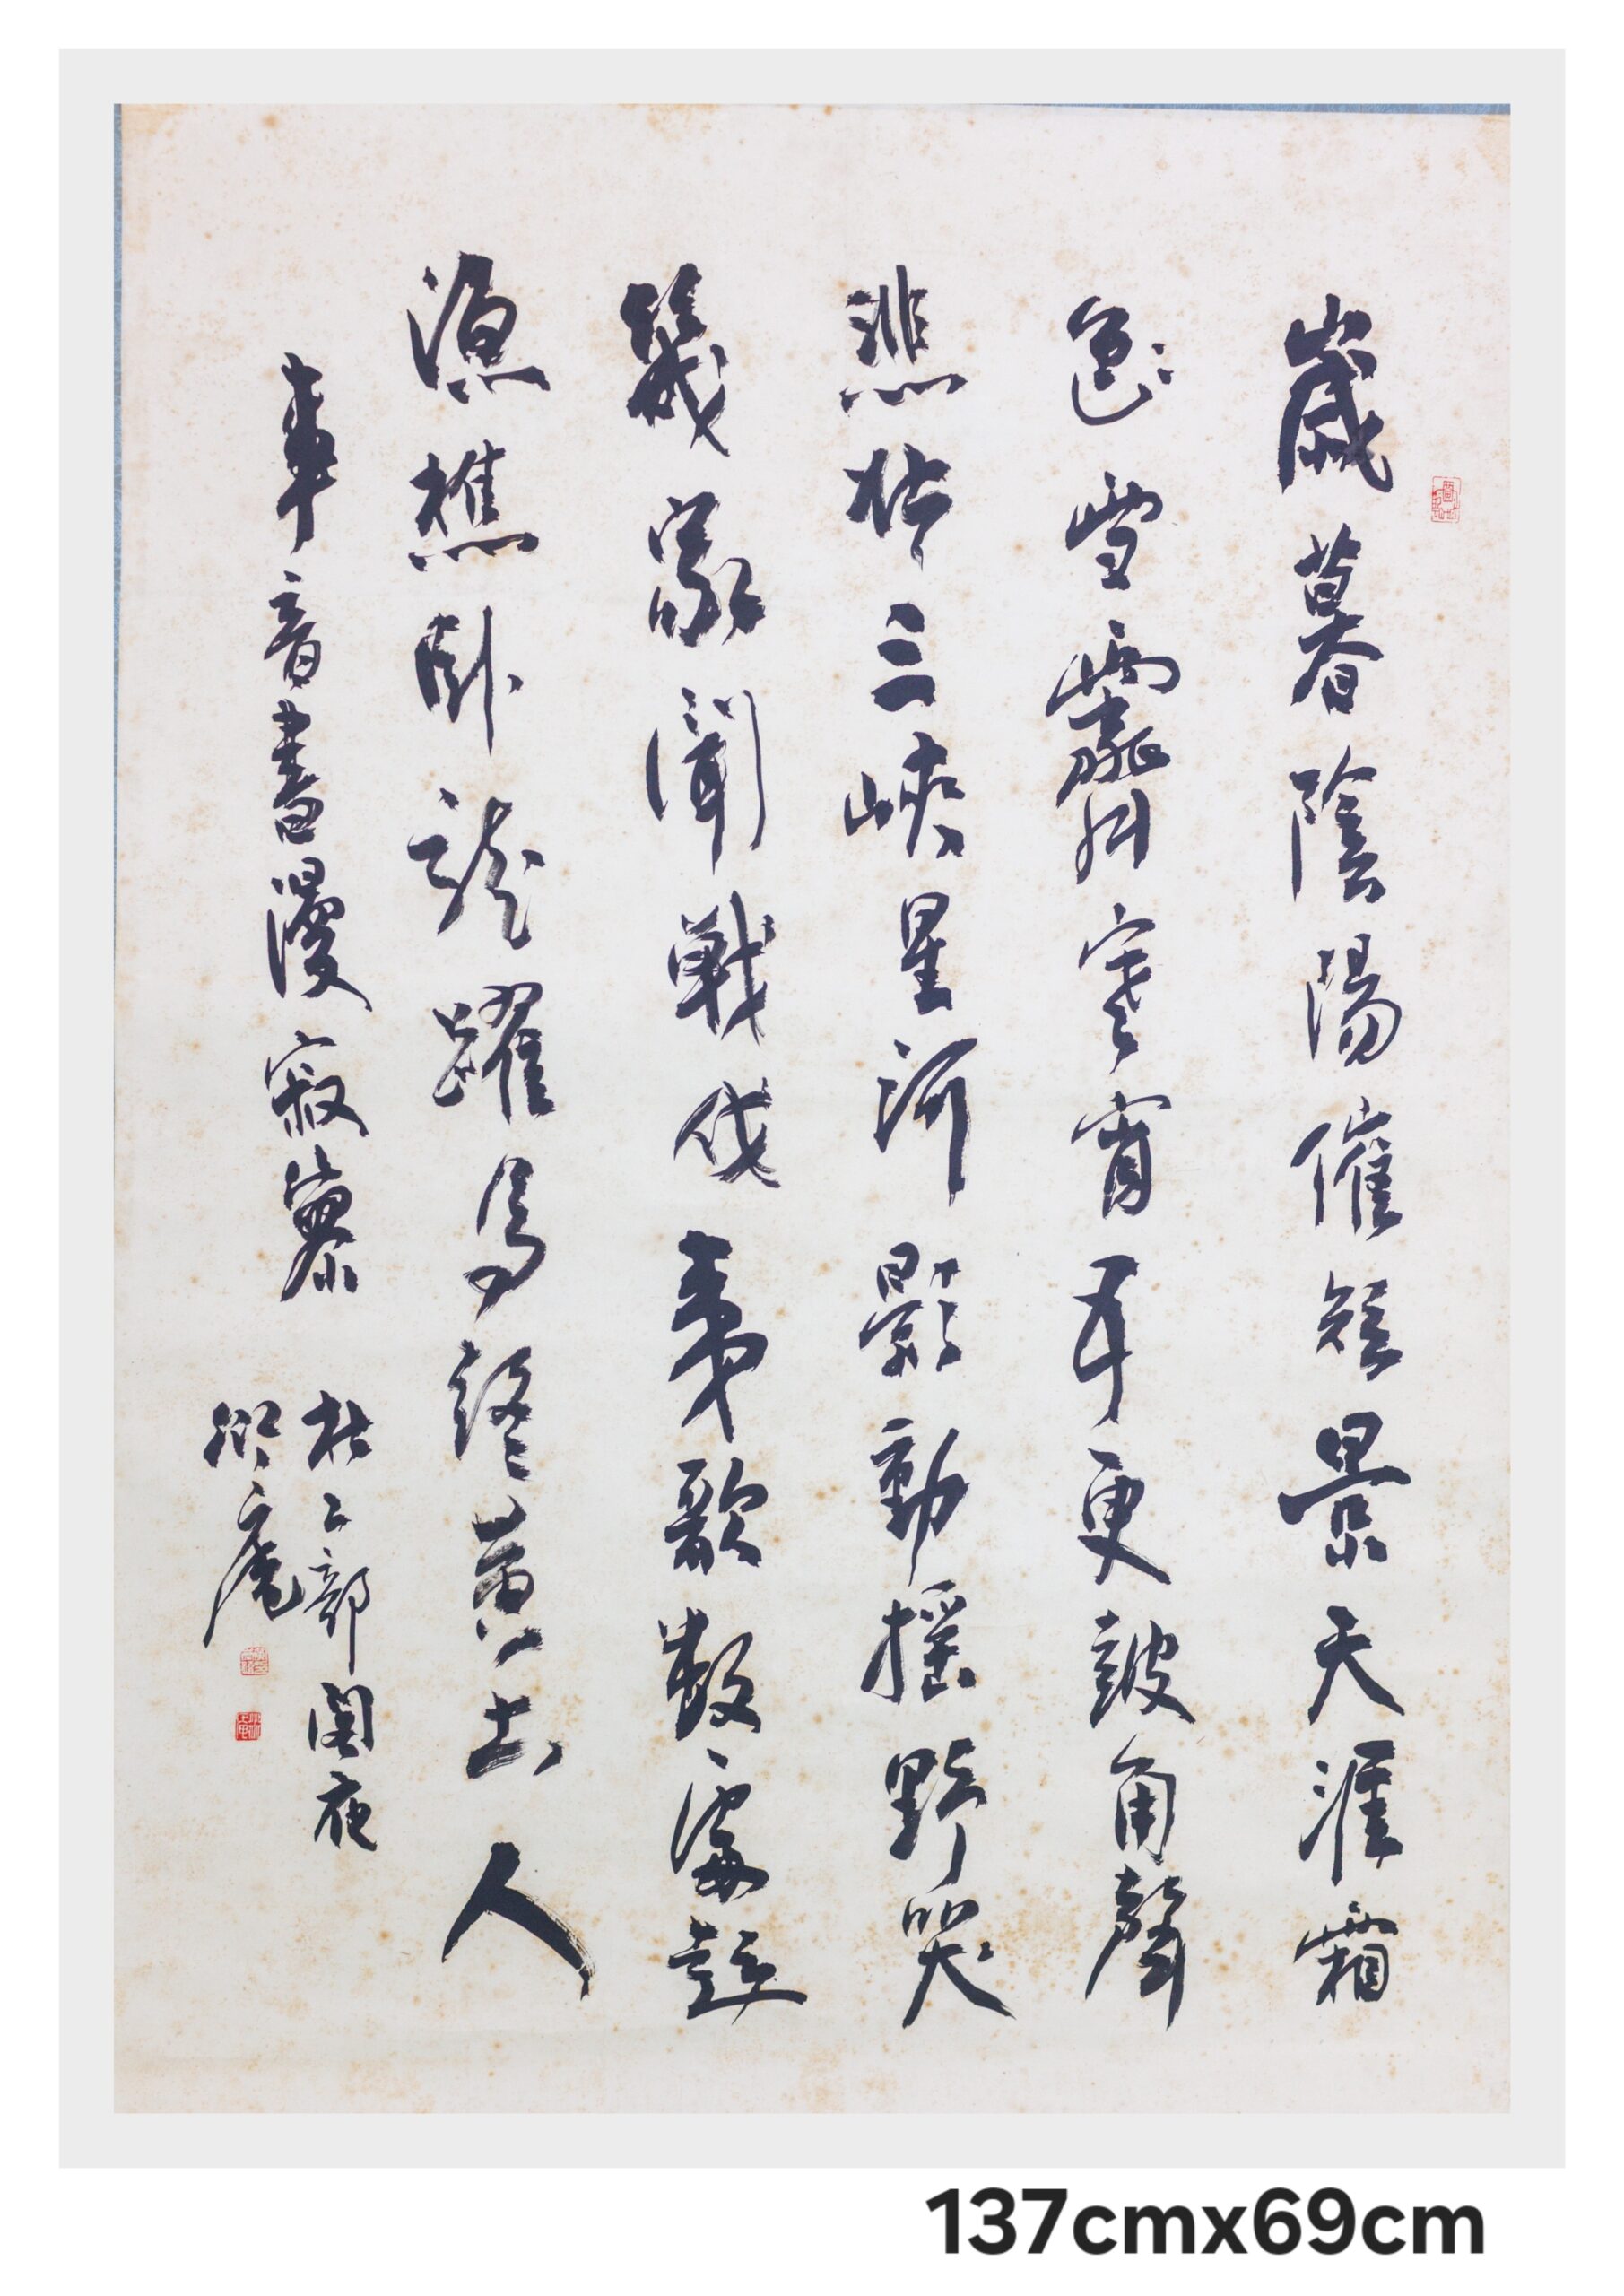 歲暮陰陽催短景天涯霜
色雪霽寒宵五更鼓角聲
悲壯三峽星河影動搖野哭
幾家聞戰伐夷歌數處起
漁樵臥龍躍馬終黃土人
事音書漫寂寥
杜工部閣夜
庵
137cmx69cm